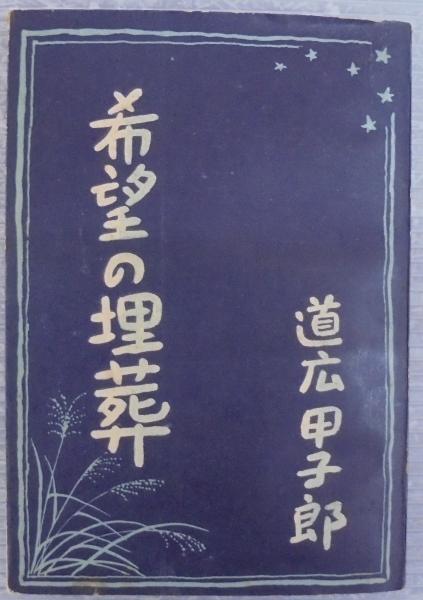 希望の埋葬
道広甲子郎